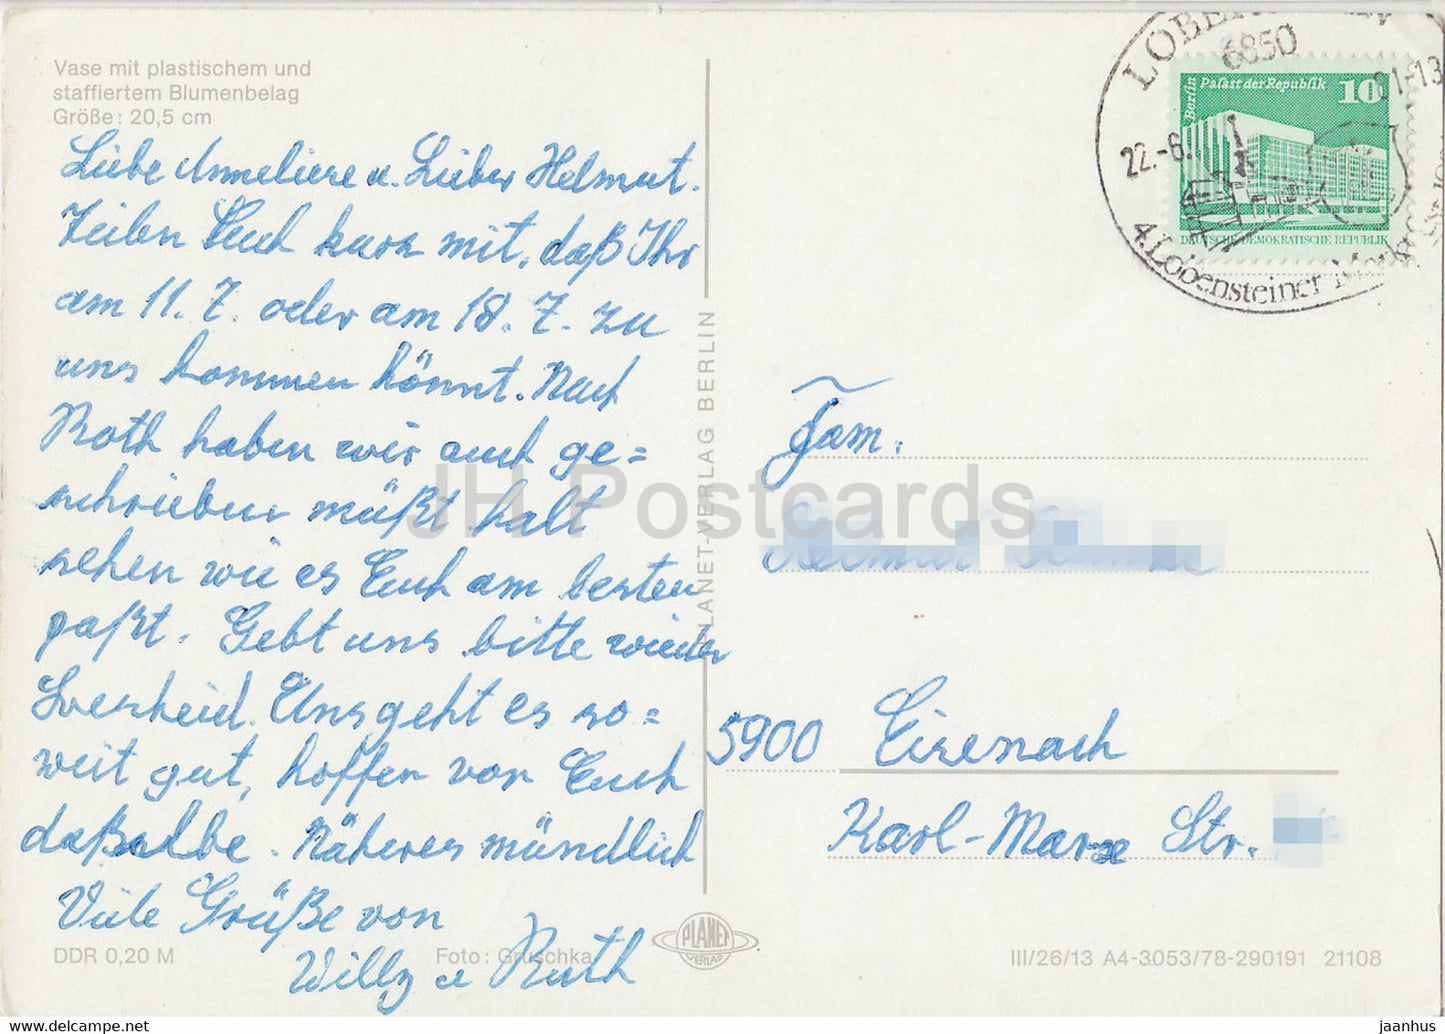 Vase mit plastischem und
staffiertem Blumenbelag
Größe: 20,5 cm
Liebe Anneliese u. Lieber Helmut.
Teilen Euch kurz mit, daß Ihr
am 11. 7. oder am 18. 7. zu
uns kommen könnt. Nach
Roth haben wir auch ge=
schrieben müßt halt
sehen wie es Euch am besten
paßt. Gebt uns bitte wieder
Bescheid. Uns geht es so=
weit gut, hoffen von Euch
daßselbe. Näheres mündlich
Viele Grüße von
Willy u Ruth
DDR 0,20 M
Foto: Gruschka
PLANET-VERLAG BERLIN
PLANET
VERLAG
6850
22.-6.
-13
4. Lobensteiner Mark
Berlin Palast der Republik 10
DEUTSCHE DEMOKRATISCHE REPUBLIK
Fam.
Helmut
5900 Eisenach
Karl-Marx Str.
III/26/13 A4-3053/78-290191 21108
JH Postcards
jaanhus__delcampe.net